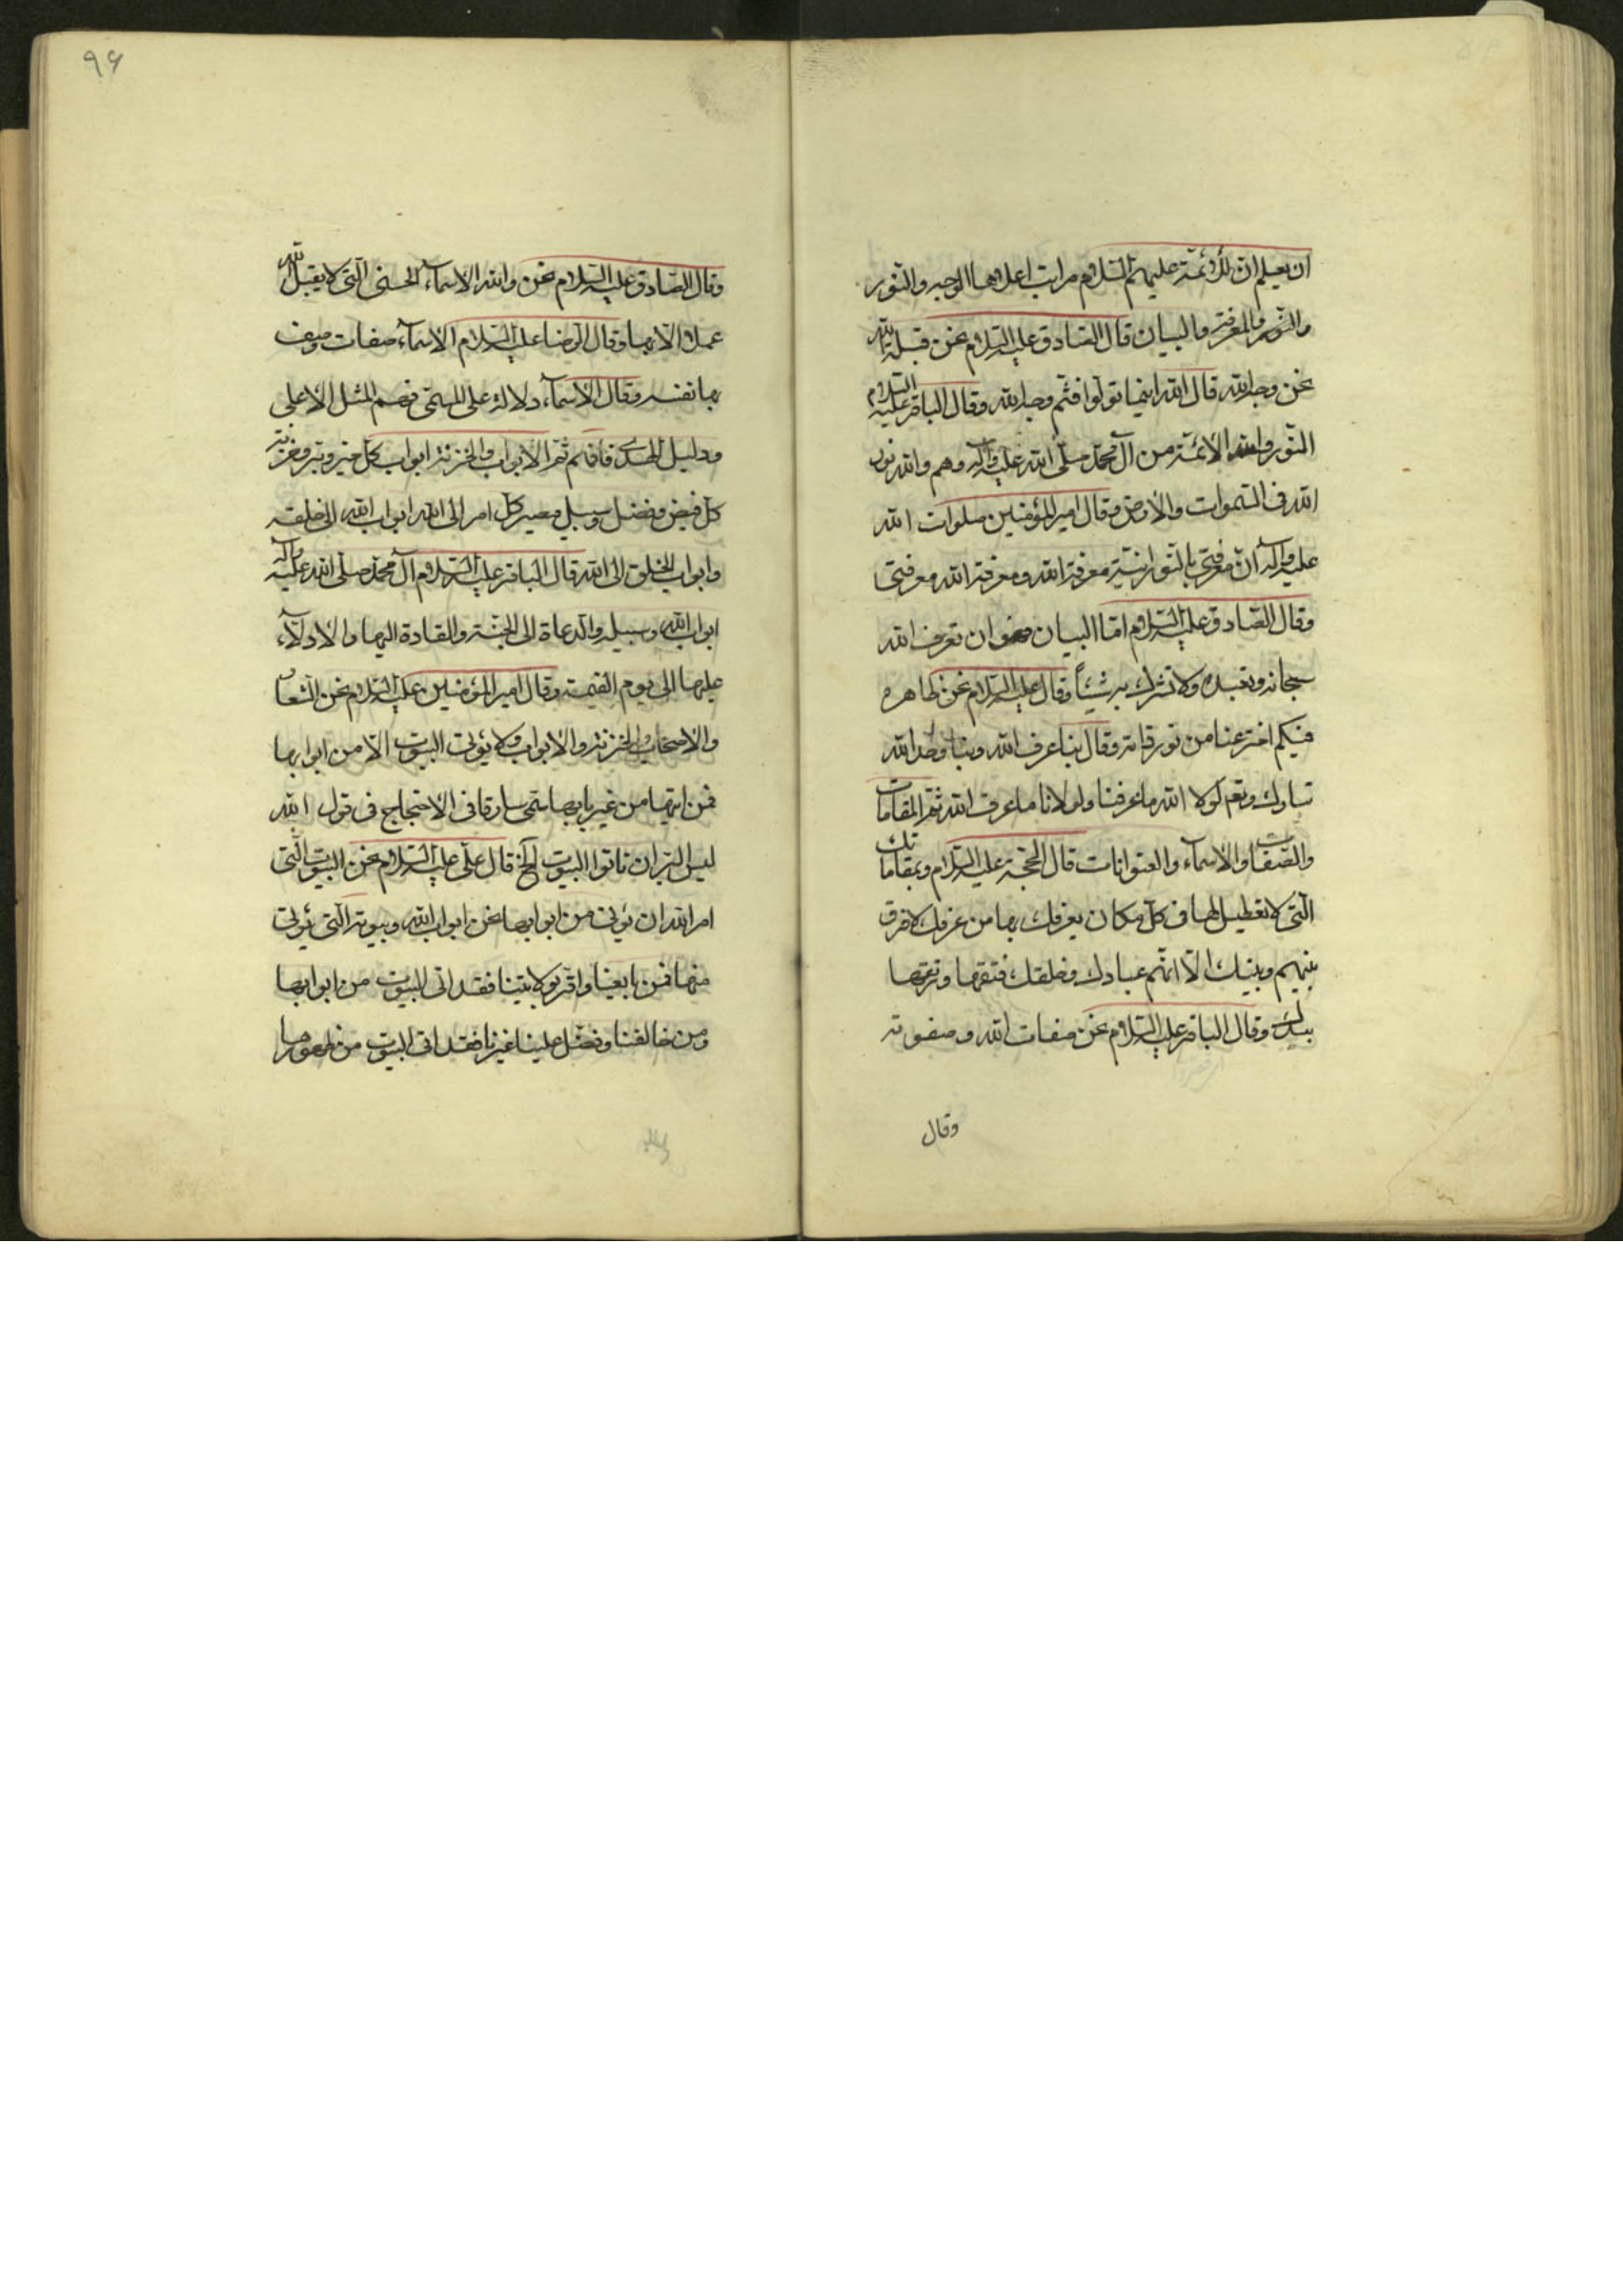 ان يعلم ان للائمة عليهم السلام مراتب اعلاها الوجه والنور
والنور والمعرفة والبيان قال الصادق عليه السلام نحن قبلة الله
نحن وجه الله قال الله اينما تولوا فثم وجه الله وقال الباقر عليه السلام
النور والله الائمة من آل محمد صلى الله عليه وآله وهم والله نور
الله فى السموات والارض وقال امير المؤمنين صلوات الله
عليه وآله ان معرفتى بالنورانية معرفة الله ومعرفة الله معرفتى
وقال الصادق عليه السلام اما البيان فهو ان تعرف الله
سبحانه وتعبده ولا تشرك به شيئاً وقال عليه السلام نحن ظاهره
فيكم اخترعنا من نور ذاته وقال بنا عرف الله وبنا وحد الله
تبارك وتعم لولا الله ما عرفنا ولولانا ما عرف الله ثم المقامات
والصفات والاسمآء والعنوانات قال الحجة عليه السلام وبمقاماتك
التى لا تعطيل لها فى كل مكان يعرفك بها من عرفك لا فرق
بينهم وبينك الا انهم عبادك وخلقك فتقها ورتقها
بيدك وقال الباقر عليه السلام نحن صفات الله وصفوته
وقال
٩۶
وقال الصادق عليه السلام نحن والله الاسمآء الحسنى التى لا يقبل الله
عملا الا بها وقال الرضا عليه السلام الاسمآء صفات وصف
بها نفسه وقال الاسمآء دلالة على المسمى فهم المثل الاعلى
ودليل الهدى فافهم ثم الابواب والخزنة ابواب كل خير وبر وخزنة
كل فيض وفضل وسبيل ومصير كل امر الى الله ابواب الله الى خلقه
وابواب الخلق الى الله قال الباقر عليه السلام آل محمد صلى الله عليه وآله
ابواب الله وسبيله والدعاة الى الجنة والقادة اليها والادلآء
عليها الى يوم القيمة وقال امير المؤمنين عليه السلام نحن الشعار
والاصحاب والخزنة والابواب ولا يؤتى البيوت الا من ابوابها
فمن اتيها من غير بابها سمى سارقا فى الاحتجاج فى قول الله
ليس البر ان تاتوا البيوت الخ قال على عليه السلام نحن البيوت التى
امر الله ان يؤتى من ابوابها نحن ابواب الله وبيوته التى يؤتى
منها فمن بايعنا واقر بولايتنا فقد اتى البيوت من ابوابها
ومن خالفنا وفضل علينا غيرنا فقد اتى البيوت من ظهورها